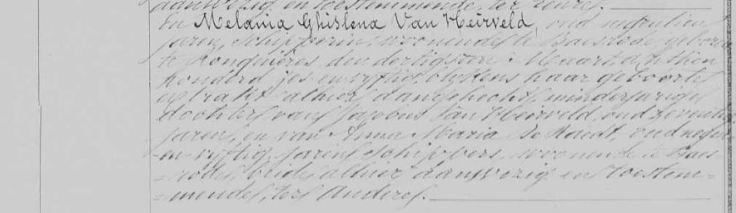 aanwezig en toestemmende, ter eenre.
en Melania Ghislena Van Heirveld, oud negentien
jaren, schipperin, woonende te Baesrode, geboren
te den dertigsten Maart, achttien
honderd zes en vyftig, blykens haar geboorte
extrakt alhier aangehecht, minderjarige
dochter van Van Heirveld, oud zeventig
jaren, en van Anna Maria De Raedt, oud negen
en vyftig jaren, schippers, woonende te Baes-
=rode, beide alhier aanwezig en toestem-
=mende, ter andere.